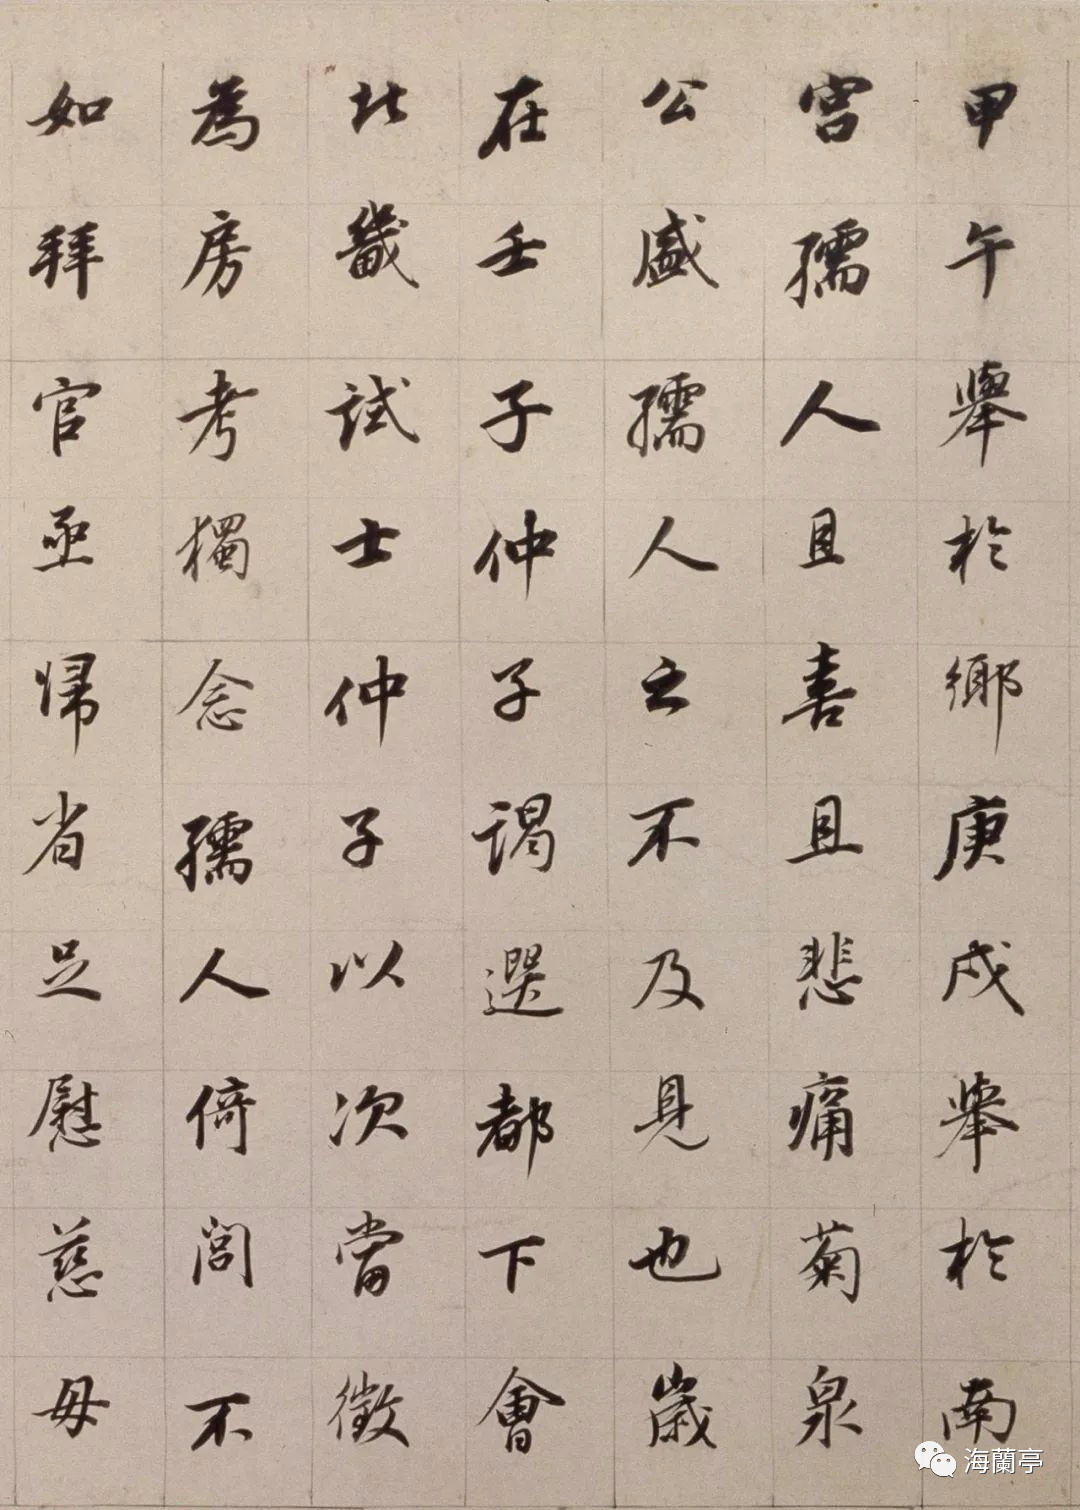 甲午舉於鄉庚戌舉於南
宮孺人且喜且悲痛菊泉
公盛孺人之不及見也歲
在壬子仲子謁選都下會
北畿試士仲子以次當徵
為房考獨念孺人倚閭不
如拜官亟歸省足慰慈母
海蘭亭